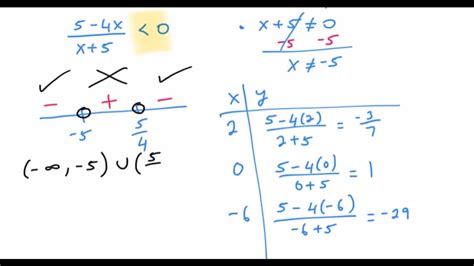 (5-4x)/(x+5) < 0
✓ ✗ ✓
− + −
-5 5/4
(-∞, -5) ∪ (5/
• x+5≠0
-5 -5
x≠-5
x y
2 (5-4(2))/(2+5) = -3/7
0 (5-4(0))/(0+5) = 1
-6 (5-4(-6))/(-6+5) = -29